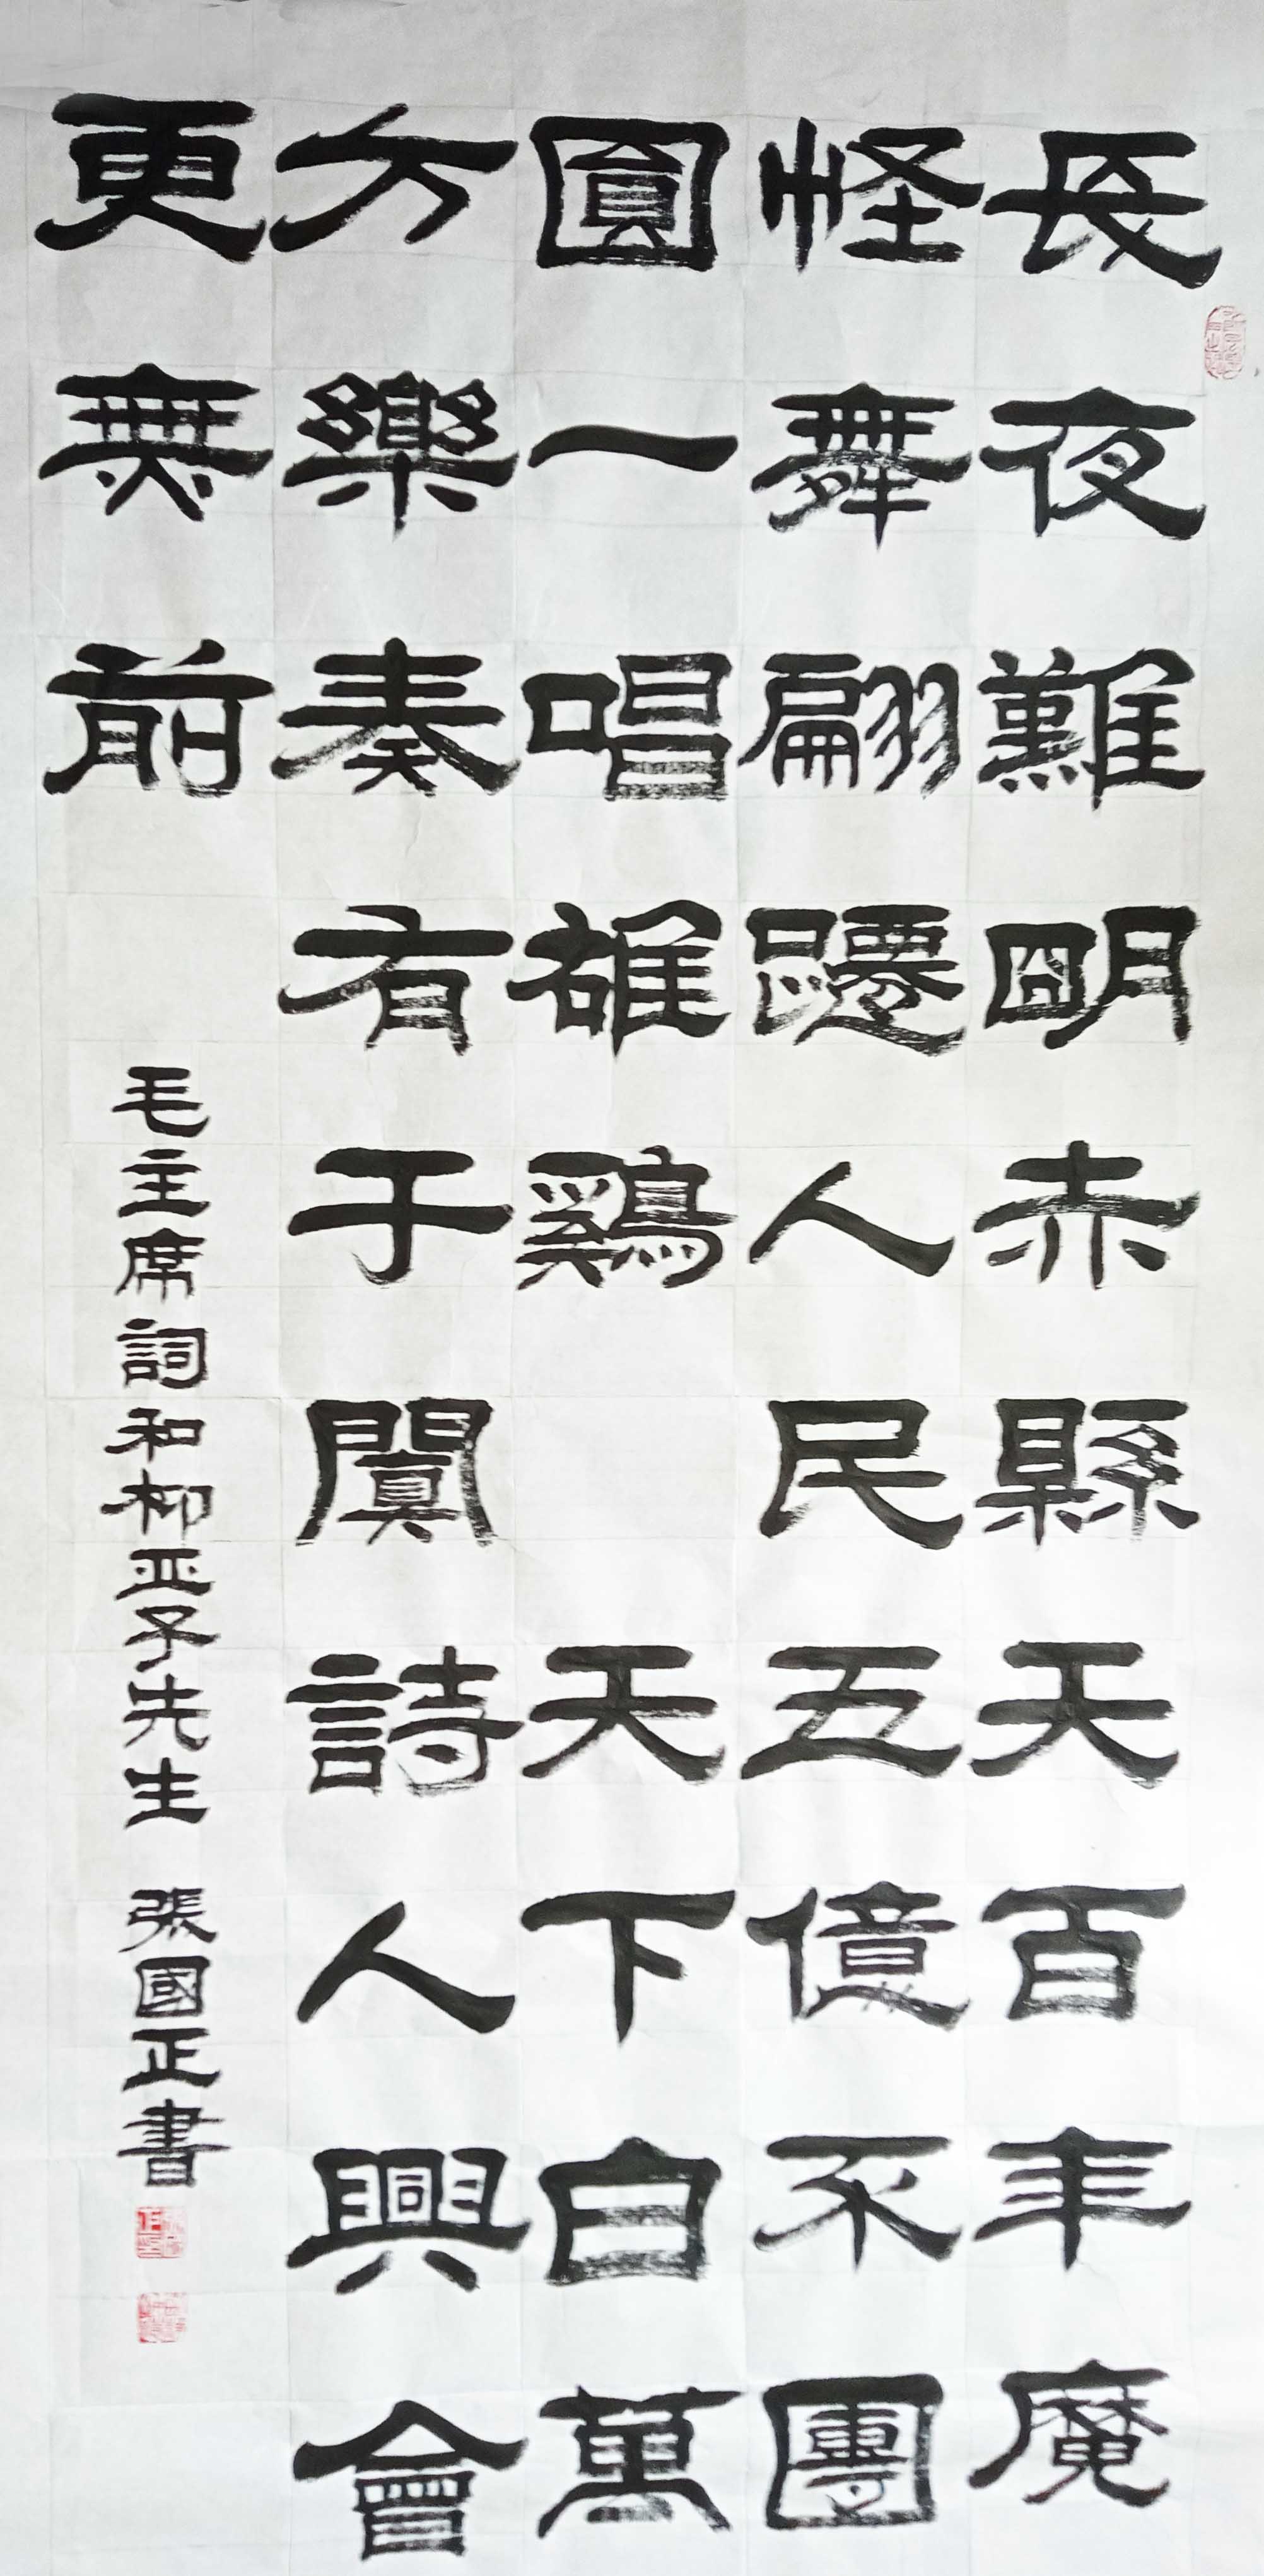 長夜難明赤縣天百年魔
怪舞翩躚人民五億不團
圓一唱雄鷄 天下白萬
方樂奏有于闐詩人興會
更無前
毛主席詞和柳亞子先生 張國正書